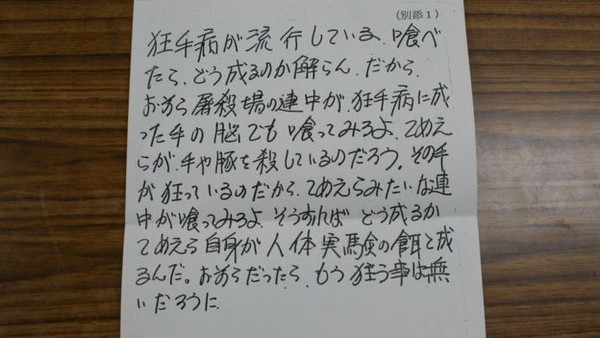 （別添１）
狂牛病が流行している、喰べ
たら、どう成るのか解らん。だから、
おまら屠殺場の連中が、狂牛病に成
った牛の脳でも喰ってみろよ、てめえ
らが、牛や豚を殺しているのだろう。その牛
が狂っているのだから、てめえらみたいな連
中が喰ってみろよ、そうすれば どう成るか
てめえら自身が人体実験の餌と成
るんだ。おまらだったら、もう狂う事は無
いだろうに